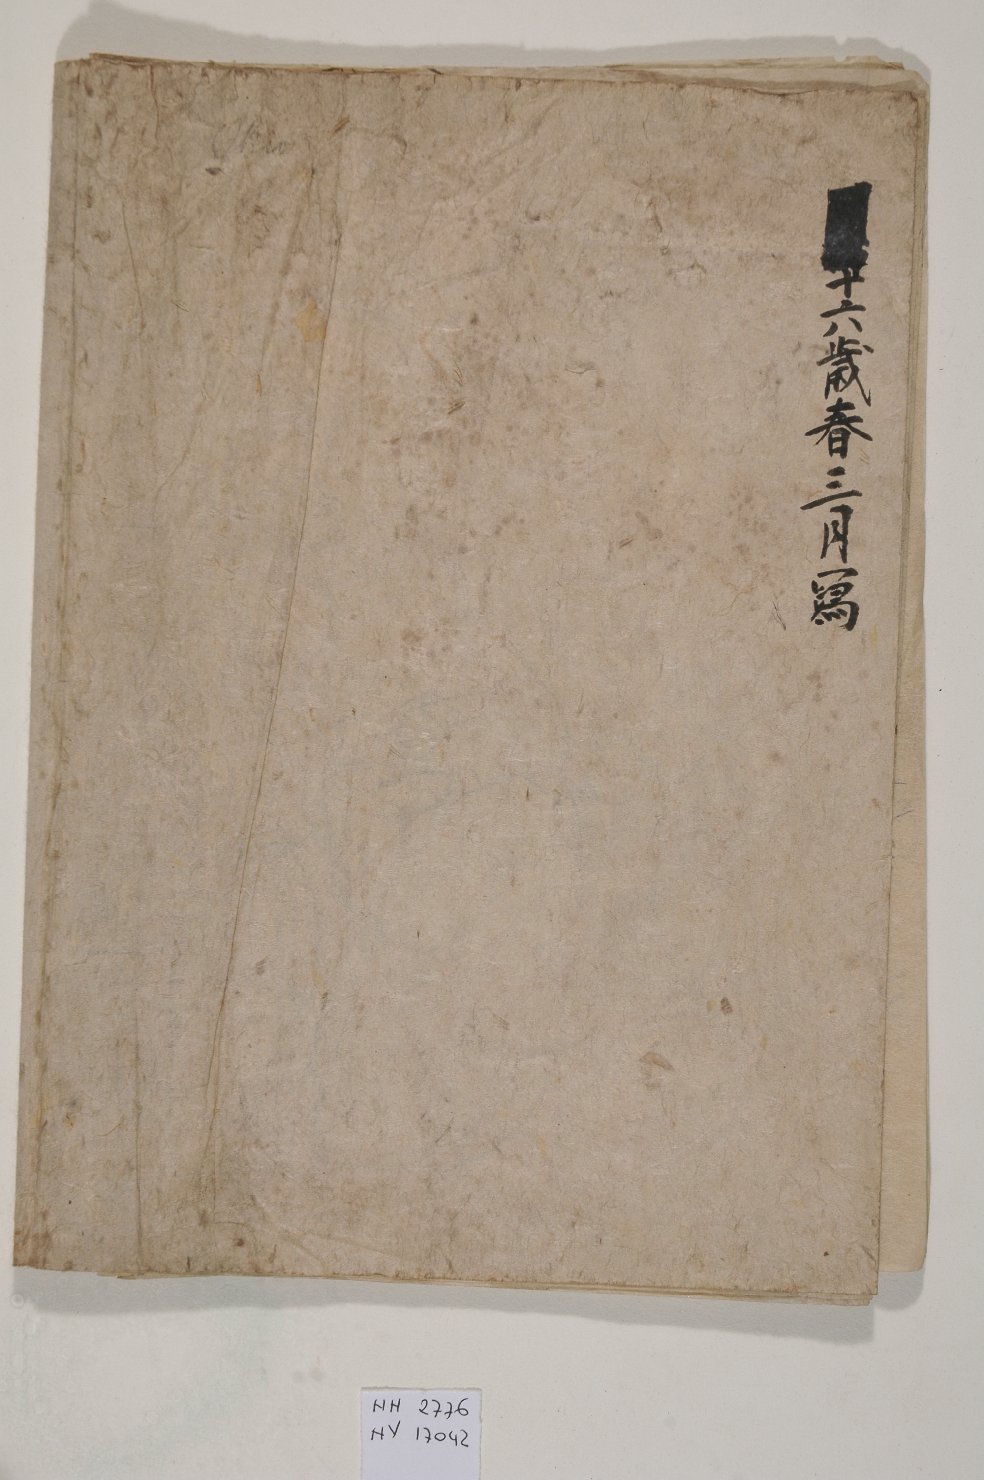 十六歳春三月寫
HH 2776
HY 17042